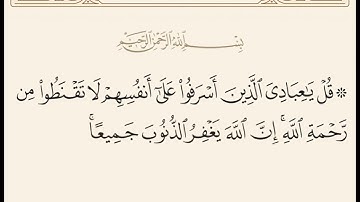 بِسْمِ ٱللَّهِ ٱلرَّحْمَٰنِ ٱلرَّحِيمِ
۞ قُلْ يَٰعِبَادِىَ ٱلَّذِينَ أَسْرَفُوا۟ عَلَىٰٓ أَنفُسِهِمْ لَا تَقْنَطُوا۟ مِن
رَّحْمَةِ ٱللَّهِ ۚ إِنَّ ٱللَّهَ يَغْفِرُ ٱلذُّنُوبَ جَمِيعًا ۚ